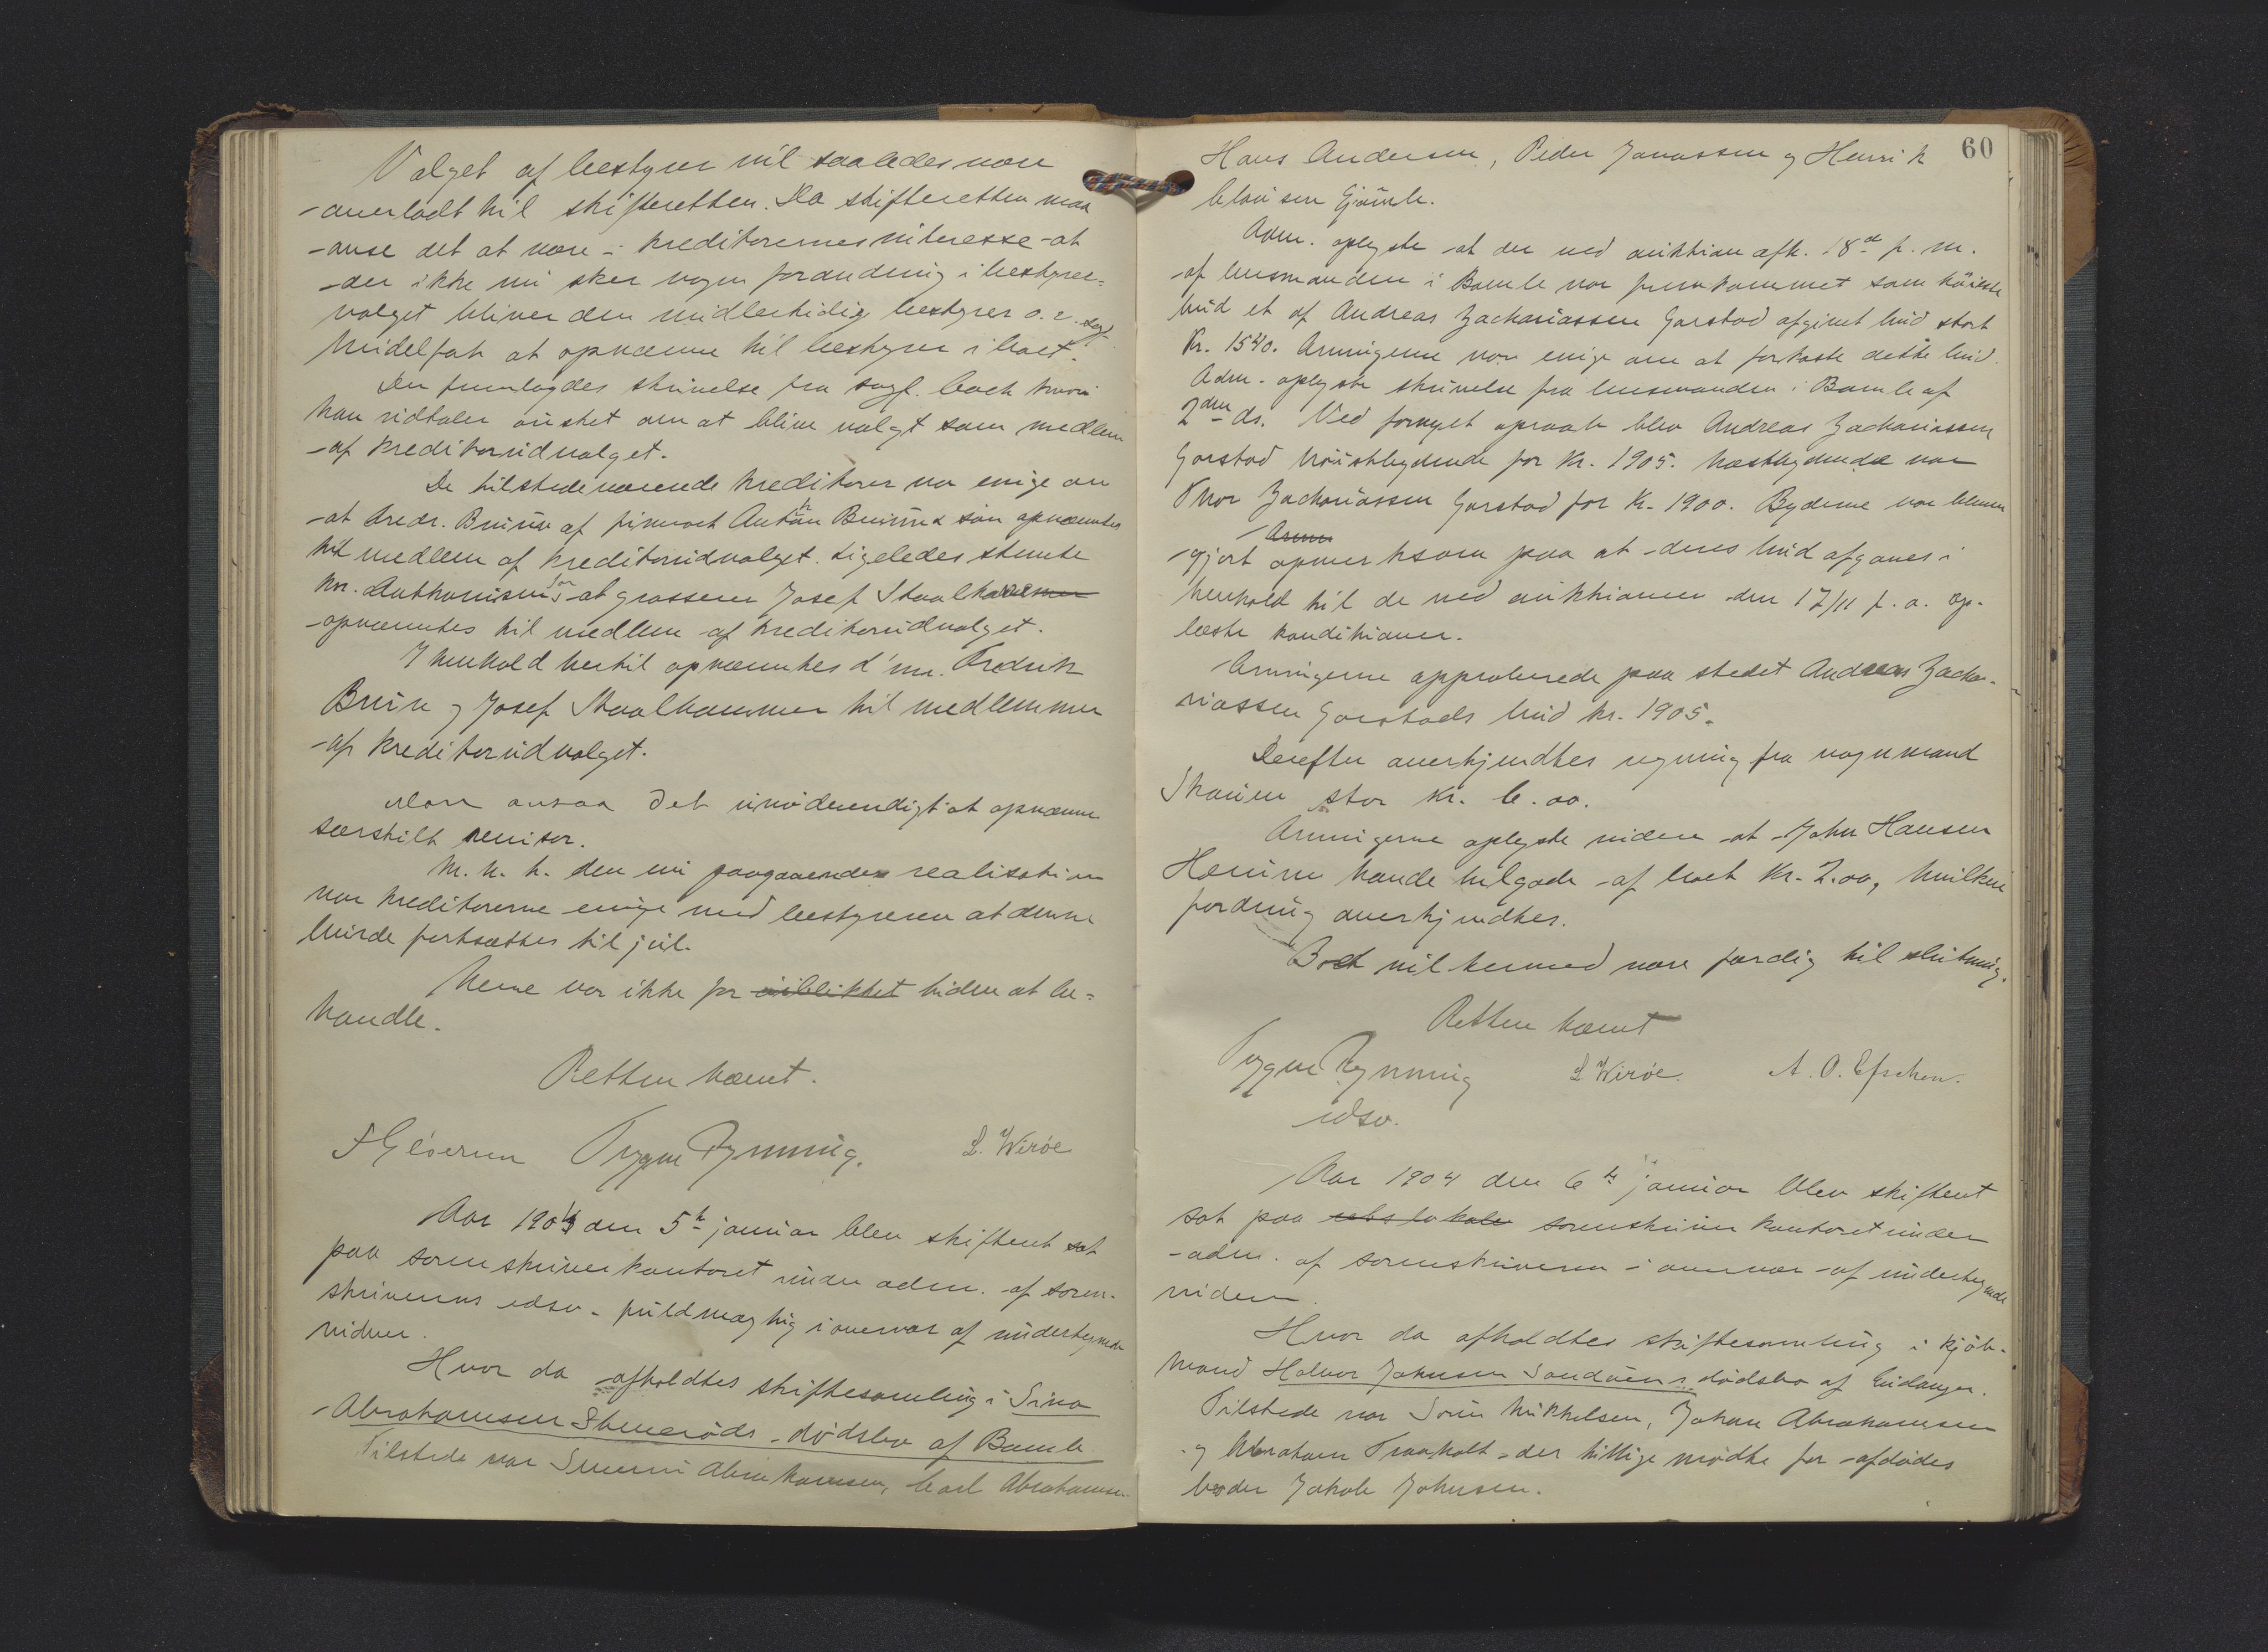 Valget af bestyrer vil saaledes være
overladt til skifteretten. Da skifteretten maa
anse det at være i kreditorernes interesse at
der ikke nu sker nogen forandring i bestyrer-
valget bliver den midlertidig bestyrer o.r.sagf.
Meidelfart at opnævne til bestyrer i boet.
Der fremlagdes skrivelse fra sagf. Coch hvori
han udtaler ønsket om at blive valgt som medlem
af kreditorudvalget.
De tilstedeværende kreditorer var enige om
at Fredr. Bruun af firmaet Anthon Bruun & søn opnævntes
til medlem af kreditorudvalget. Ligeledes stemte
hr. Anthonisen for at grosserer Josef Staalhammer
opnævntes til medlem af kreditorudvalget.
I henhold hertil opnævntes d'hrr. Fredrik
Bruun og Josef Staalhammer til medlemmer
af kreditorudvalget.
Man ansaa det unødvendigt at opnævne
særskilt revisor.
M. H. t. den nu paagaaende realisation
var kreditorerne enige med bestyreren at denne
burde fortsættes til jul.
Mere var ikke for øieblikket tiden at be-
handle.
Retten hævet.
Trygve Rynning. L. Wirøe
Aar 1904 den 5te januar blev skifteret sat
paa sorenskriverkontoret under adm. af soren-
skriverens edsv. fuldmægtig i overvær af undertegnede
vidner.
Hvor da afholdtes skiftesamling i Sina
Abrahamsen Steneröds dødsbo af Bamle.
Tilstede var Abrahamsen, Carl Abrahamsen
60
Hans Andersen, Peder Jonassen og Henrik
Clausen Gjömle.
Adm. oplyste at der ved auktion afh. 18de f. m.
af lensmanden i Bamle var fremkommet som høieste
bud et af Andreas Zachariassen Garstad afgivet bud stort
kr. 1540. Arvingerne var enige om at forkaste dette bud.
Adm. oplyste skrivelse fra lensmanden i Bamle af
2den ds. Ved fornyet opraab blev Andreas Zachariassen
Garstad høistbydende for kr. 1905. Næstbydende var
Thor Zachariassen Garstad for kr. 1900. Byderne var bleven
gjort opmerksom paa at deres bud afgaves i
henhold til de ved auktionen den 17/11 f. a. op-
læste konditioner.
Arvingerne approberede paa stedet Andreas Zacha-
riassen Garstads bud kr. 1905.
Derefter anerkjendtes regning fra vognmand
Skauen stor kr. 6.00.
Arvingerne oplyste videre at John Hansen
Hænum havde tilgode af boet kr. 2.00, hvilken
fordring anerkjendtes.
Boet vil hermed være færdig til slutning.
Retten hævet
Trygve Rynning L Wirøe. A. O. Efschen.
edsv.
Aar 1904 den 6te januar blev skifteret
sat paa retslokale sorenskriverkontoret under
adm. af sorenskriveren i overvær af undertegnede
vidner.
Hvor da afholdtes skiftesamling i kjøb-
mand Halvor Johnsen Sandöens dødsbo af Eidanger.
Tilstede var Sören Mikkelsen, Johan Abrahamsen
og Abraham Traaholt der tillige mødte for afdødes
broder Jakob Johnsen.